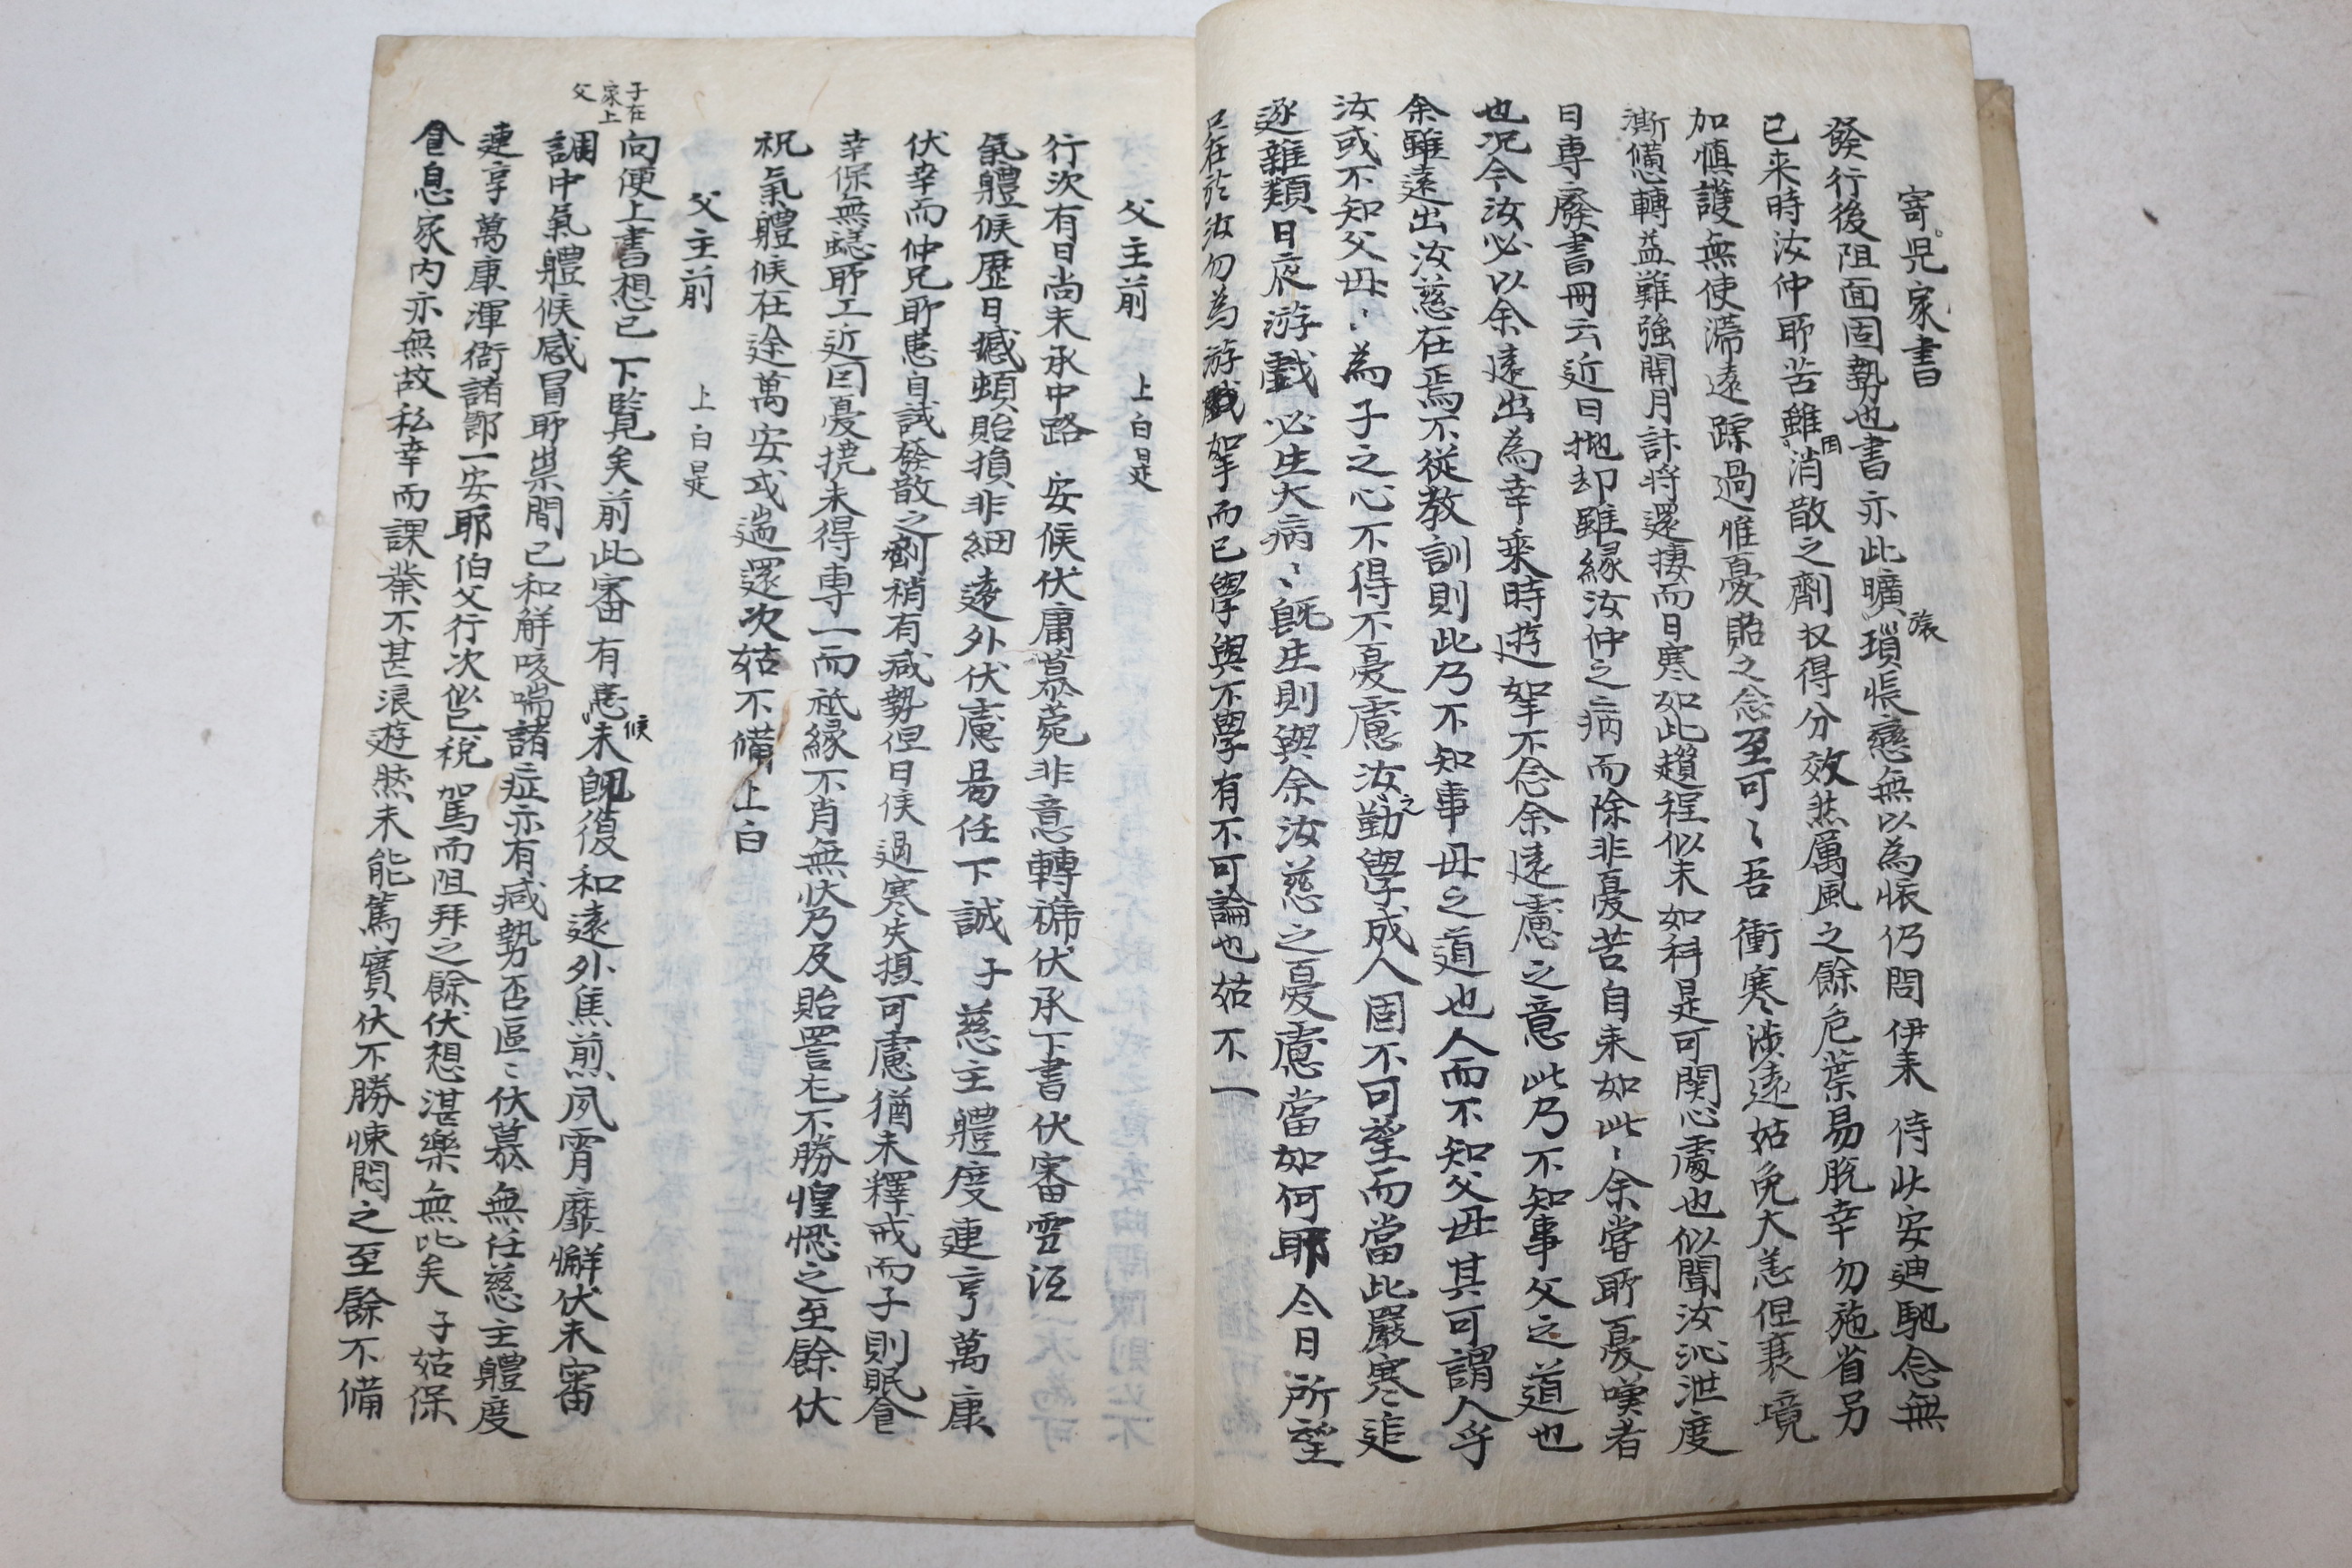 寄児家書
發行後阻面固勢也書亦此曠瑣悵戀無以為悵仍問伊来侍狀安迪馳念無
已来時汝仲所苦雖因消散之劑奴得分效然厲風之餘危葉易脫幸勿施省另
加慎護無使滯遠踪過惟憂貽之念至可〻吾衝寒涉遠姑免大恙但衰境
澌憊轉益難強開月計將還捿而日寒如此趲程似未如料是可関心處也似聞汝沁泄度
日專廢書冊云近日抛却雖縁汝仲之病而除非憂苦自来如此〻余嘗所憂嘆者
也况今汝必以余遠出為幸乗時遊挐不念余遠慮之意此乃不知事父之道也
余雖遠出汝慈在焉不従教訓則此乃不知事母之道也人而不知父母其可謂人乎
汝或不知父母〻為子之心不得不憂慮汝之勤學成人固不可望而當此嚴寒追
逐雜類日夜游戱必生大病〻既生則與余汝慈之憂慮當如何耶今日所望
只在於汝勿為游戱挐而已學與不學有不可論也姑不一
父主前 上白是
行次有日尚未承中路 安候伏庸慕菀非意轉褫伏承下書伏審雪沍
氣體候歷日撼頓貽損非細遠外伏慮曷任下誠 子慈主體度連亨萬康
伏幸而仲兄所患自試發散之劑稍有减勢但日候過寒失攝可慮猶未釋戒而子則眠食
幸保無蜣所工近因憂撓未得専一而祗縁不肖無狀乃及貽詈尤不勝惶愧之至餘伏
祝氣體候在途萬安 遄還次姑不備上白
父主前 上白是
子在家上父
向便上書想已 下覧矣前此審 有患候未 復和遠外焦煎夙霄靡懈伏未審
調中氣體候感冒所祟間已和解咳喘諸症亦有减勢否區〻伏慕無任慈主體度
連享萬康渾衙諸節一安耶伯父行次似已稅 駕而阻拜之餘伏想湛樂無比矣 子姑保
食息家内亦無故私幸而課業不甚浪遊然未能篤實伏不勝悚悶之至餘不備